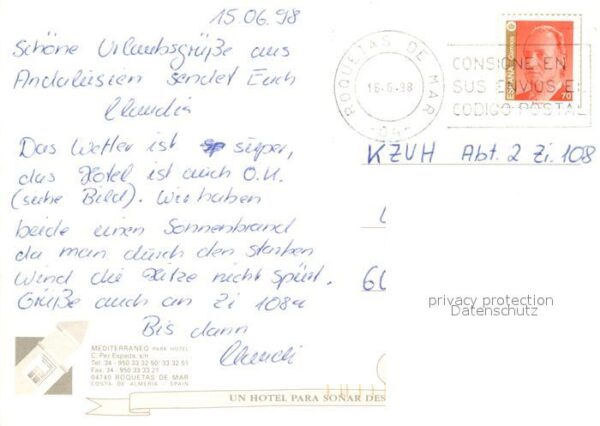 15.06.98
Schöne Urlaubsgrüße aus
Andalusien sendet Euch
Claudia
Das Wetter ist super,
das Hotel ist auch O.K.
(siehe Bild). Wir haben
beide einen Sonnenbrand
da man durch den starken
Wind die Hitze nicht spürt.
Grüße auch an Zi 108a
Bis dann
Claudi
ROQUETAS DE MAR
16-6-98
-04-
CONSIGNE EN
SUS ENVIOS EL
CODIGO POSTAL
ESPAÑA
70
KZVH Abt. 2 Zi. 108
60
privacy protection
Datenschutz
MEDITERRANEO PARK HOTEL
C. Per Espada, s/n
Tel. 34 - 950 33 32 50/ 33 32 51
Fax. 34 - 950 33 33 21
04740 ROQUETAS DE MAR
COSTA DE ALMERIA - SPAIN
UN HOTEL PARA SOÑAR DES